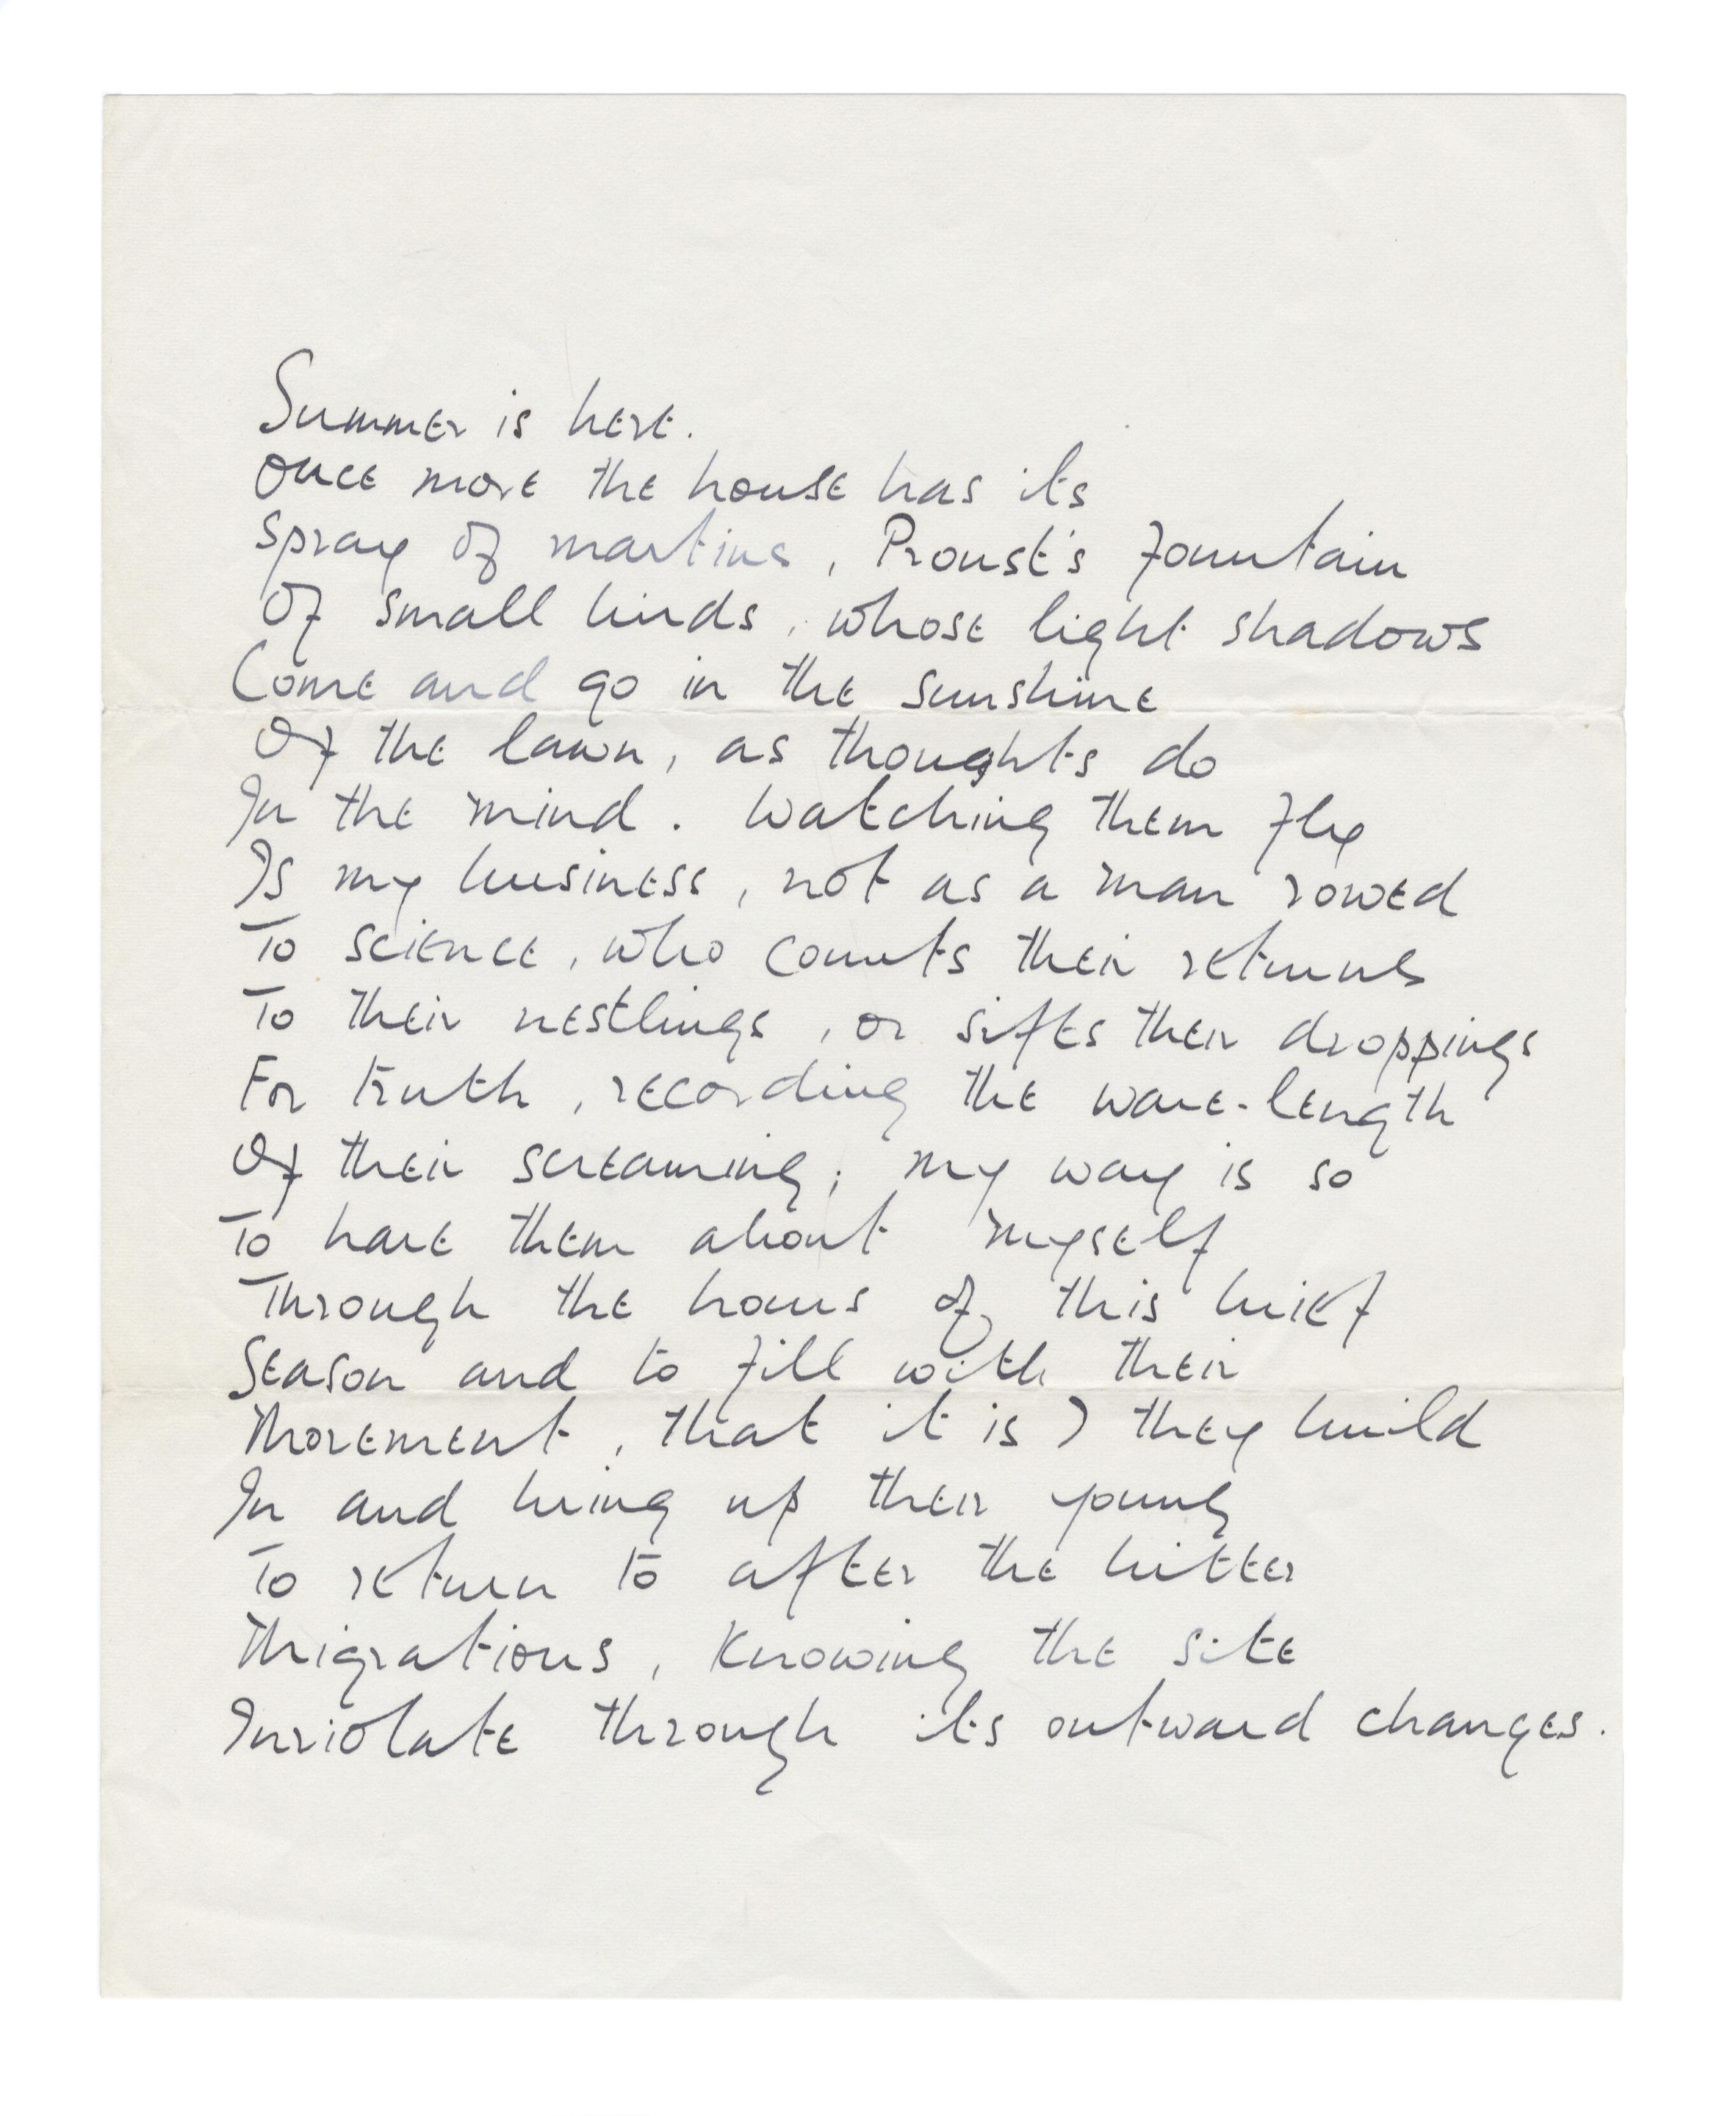 Summer is here.
Once more the house has its
Spray of martins, Proust's fountain
Of small birds, whose light shadows
Come and go in the sunshine
Of the lawn, as thoughts do
In the mind. Watching them fly
Is my business, not as a man vowed
To science, who counts their returns
To their nestlings, or sifts their droppings
For truth, recording the wave-length
Of their screaming; my way is so
To have them about myself
Through the hours of this brief
Season and to fill with their
Movement, that it is I they build
In and bring up their young
To return to after the bitter
Migrations, knowing the site
Inviolate through its outward changes.